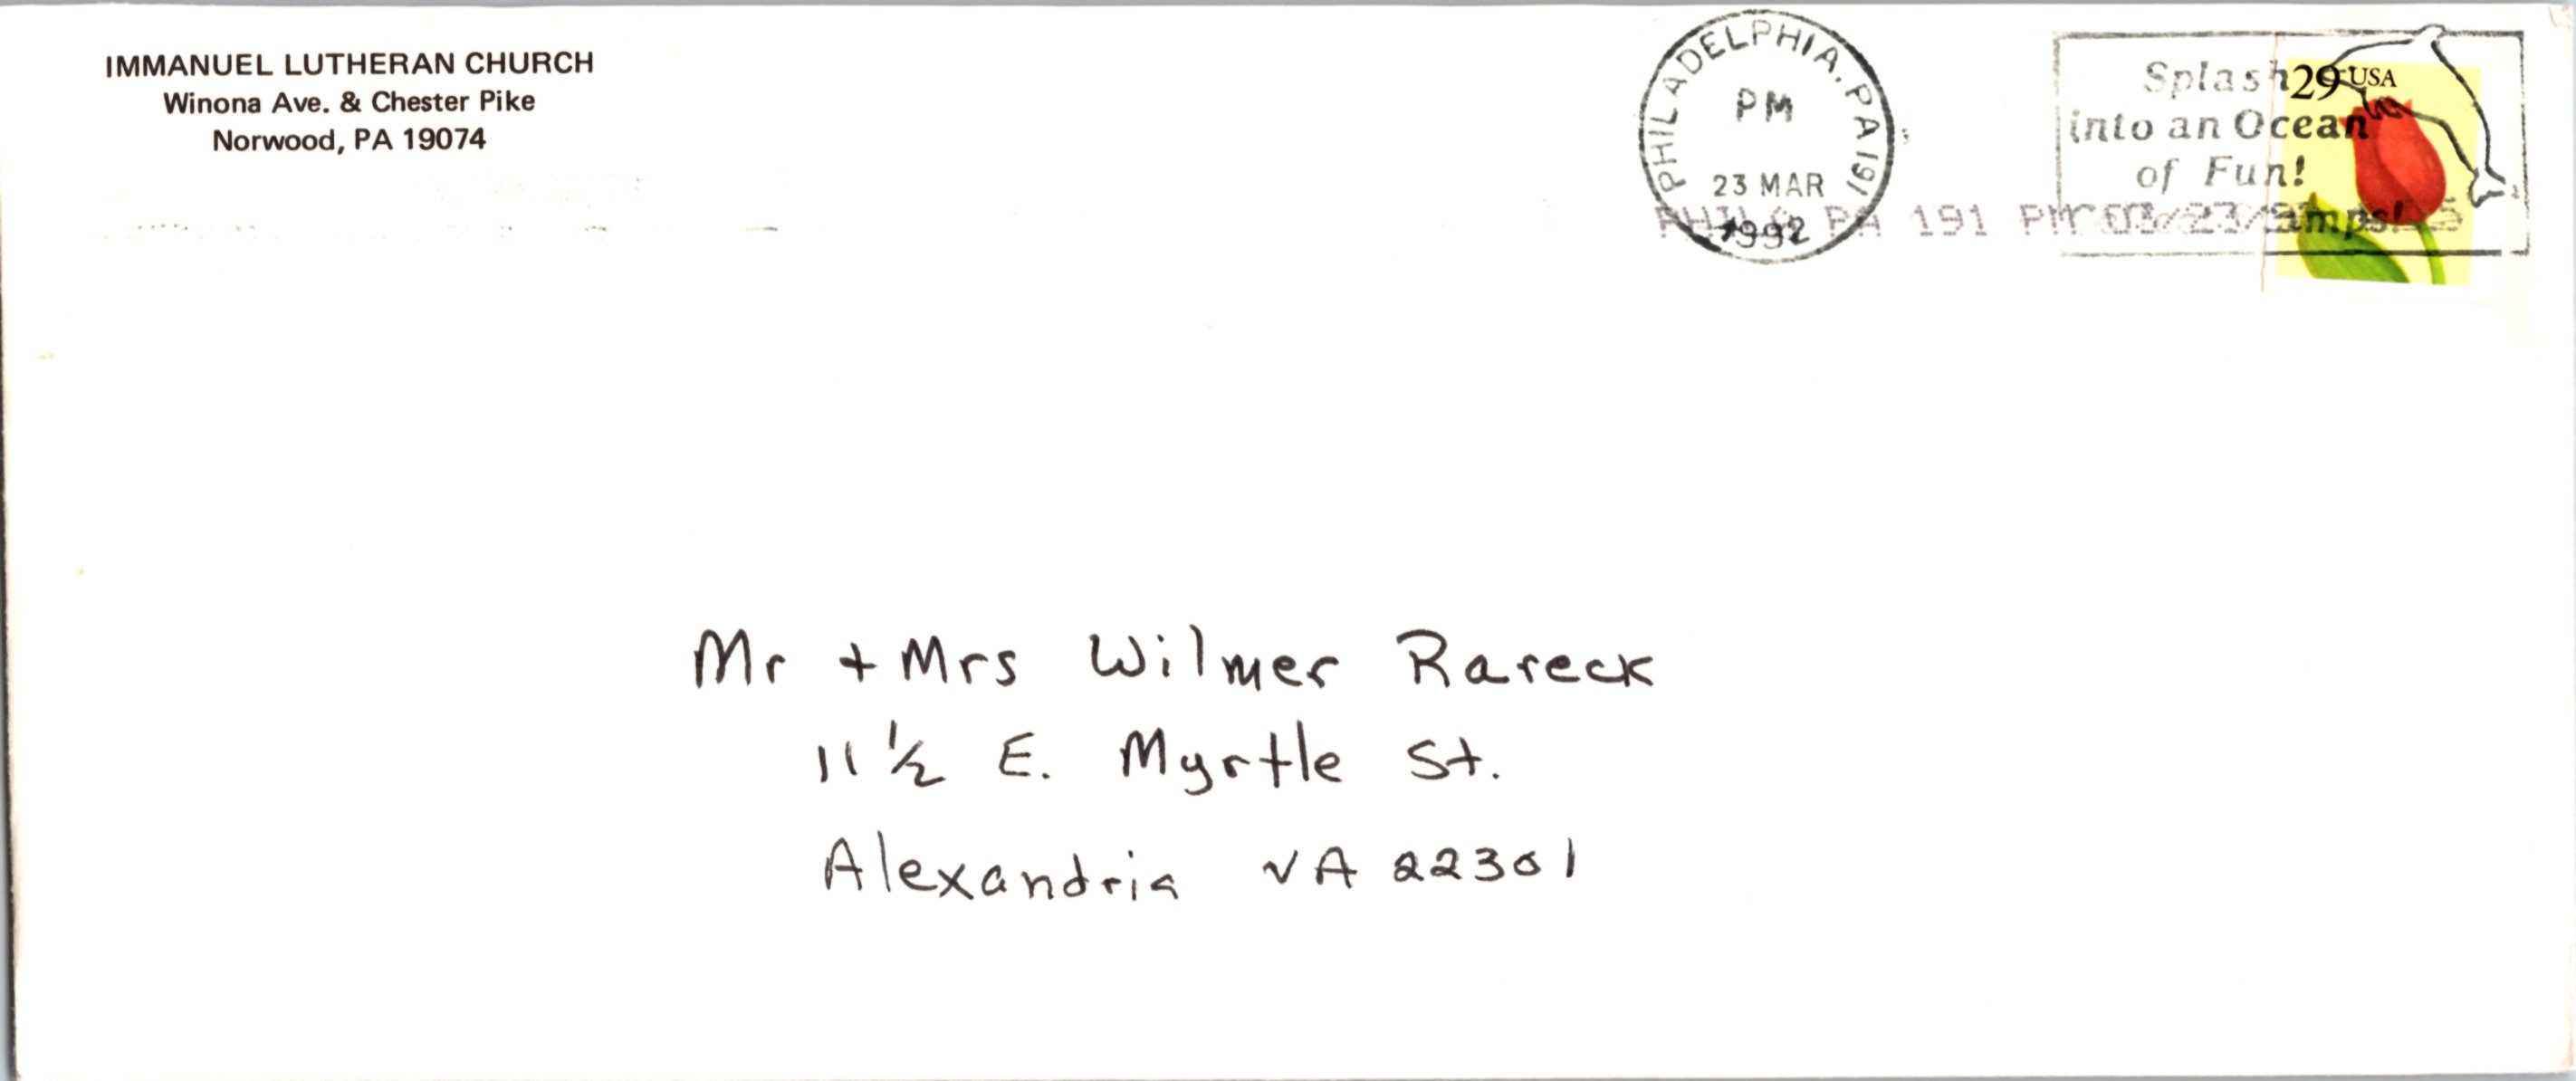 IMMANUEL LUTHERAN CHURCH
Winona Ave. & Chester Pike
Norwood, PA 19074
PHILADELPHIA, PA 191
PM
23 MAR
1992
Splash
into an Ocean
of Fun!
29 USA
PHILA PA 191 PM 03/23/
Mr + Mrs Wilmer Rareck
11 1/2 E. Myrtle St.
Alexandria VA 22301